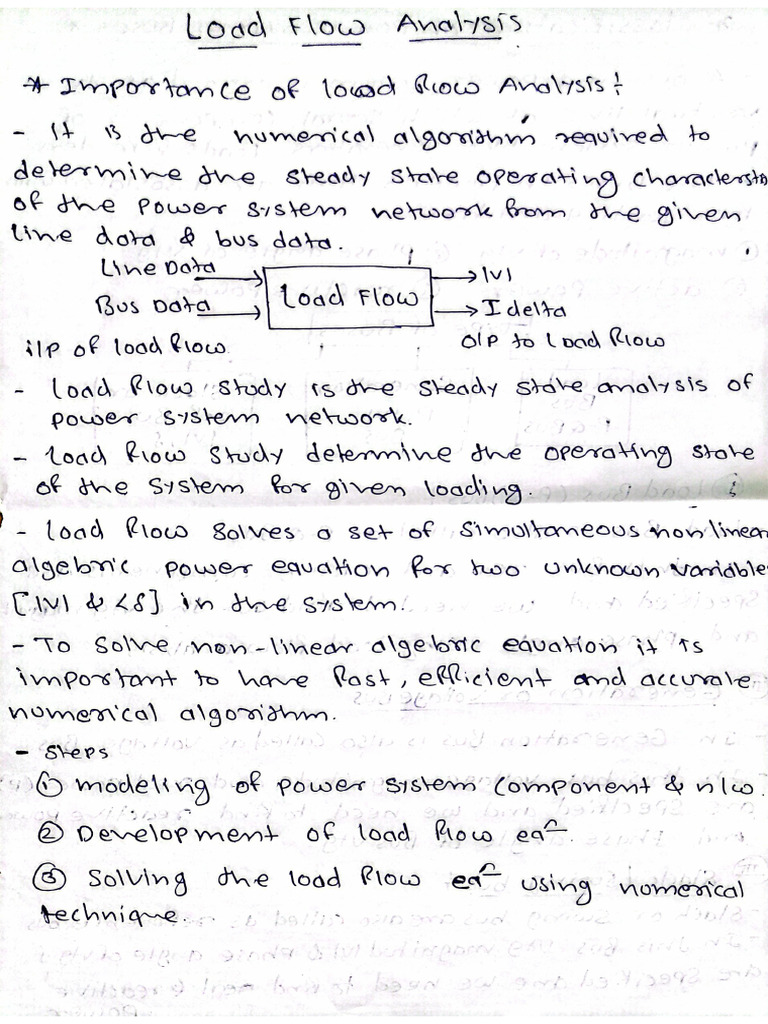 Load Flow Analysis
* Importance of load flow Analysis :
- It is the numerical algorithm required to
determine the steady state operating characterstc
of the power system network from the given
line data & bus data.
Line Data
Load Flow
→ |V|
Bus Data
→ I delta
i/P of load flow
O/P to Load Flow
- Load flow study is the steady state analysis of
power system network.
- Load flow study determine the operating state
of the system for given loading.
- Load flow solves a set of simultaneous nonlinear
algebric power equation for two unknown variable
[|V| & <δ] in the system.
- To solve non-linear algebric equation it is
important to have fast, efficient and accurate
numerical algorithm.
- Steps
① modeling of power system component & n/w.
② Development of load flow eqn
③ Solving the load flow eqn using numerical
technique.